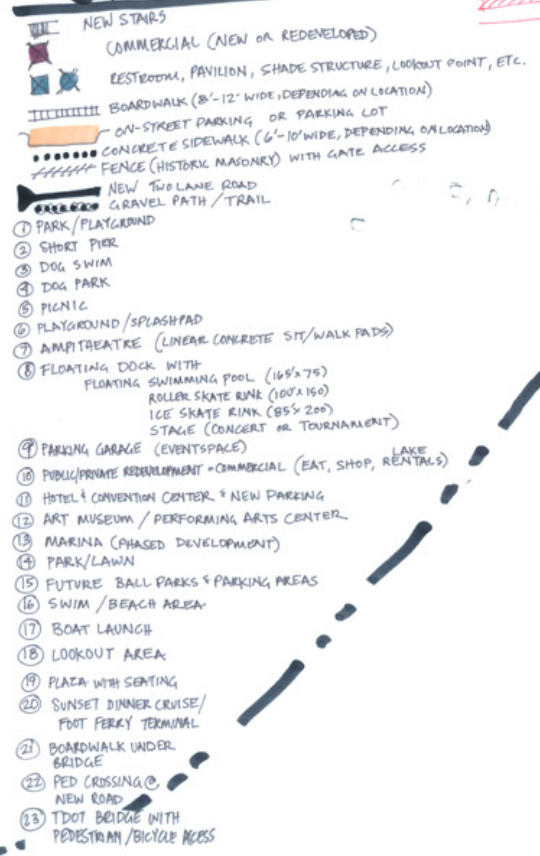 NEW STAIRS
COMMERCIAL (NEW OR REDEVELOPED)
RESTROOM, PAVILION, SHADE STRUCTURE, LOOKOUT POINT, ETC.
BOARDWALK (8'-12' WIDE, DEPENDING ON LOCATION)
ON-STREET PARKING OR PARKING LOT
CONCRETE SIDEWALK (6'-10' WIDE, DEPENDING ON LOCATION)
FENCE (HISTORIC MASONRY) WITH GATE ACCESS
NEW TWO LANE ROAD
GRAVEL PATH / TRAIL
① PARK/PLAYGROUND
② SHORT PIER
③ DOG SWIM
④ DOG PARK
⑤ PICNIC
⑥ PLAYGROUND/SPLASHPAD
⑦ AMPITHEATRE (LINEAR CONCRETE SIT/WALK PADS)
⑧ FLOATING DOCK WITH
FLOATING SWIMMING POOL (165'x75')
ROLLER SKATE RINK (100'x150)
ICE SKATE RINK (85'x200)
STAGE (CONCERT OR TOURNAMENT)
⑨ PARKING GARAGE (EVENTSPACE)
⑩ PUBLIC/PRIVATE REDEVELOPMENT - COMMERCIAL (EAT, SHOP, LAKE RENTALS)
⑪ HOTEL & CONVENTION CENTER & NEW PARKING
⑫ ART MUSEUM / PERFORMING ARTS CENTER
⑬ MARINA (PHASED DEVELOPMENT)
⑭ PARK/LAWN
⑮ FUTURE BALL PARKS & PARKING AREAS
⑯ SWIM/BEACH AREA
⑰ BOAT LAUNCH
⑱ LOOKOUT AREA
⑲ PLAZA WITH SEATING
⑳ SUNSET DINNER CRUISE/
FOOT FERRY TERMINAL
㉑ BOARDWALK UNDER
BRIDGE
㉒ PED CROSSING @
NEW ROAD
㉓ TDOT BRIDGE WITH
PEDESTRIAN/BICYCLE ACESS